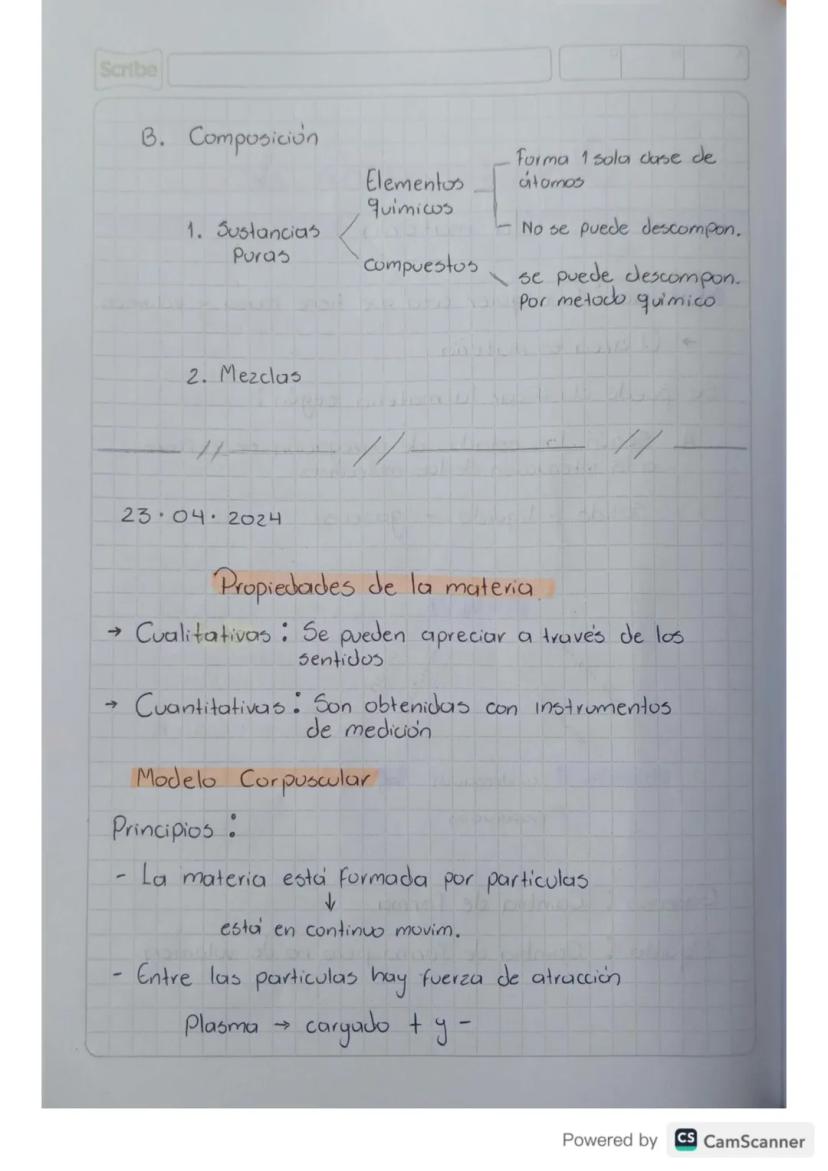 Scribe
B. Composición
Forma 1 sola clase de
átomos
Elementos
químicos
No se puede descompon.
1. Sustancias
Puras
compuestos
se puede descompon.
Por metodo químico
2. Mezclas
23·04·2024
Propiedades de la materia
→ Cualitativas: Se pueden apreciar a través de los
sentidos
→ Cuantitativas: Son obtenidas con instrumentos
de medición
Modelo Corpuscular
Principios:
- La materia está formada por particulas
↓
está en continuo movim.
- Entre las particulas hay fuerza de atracción
Plasma → cargado + y -
Powered by CS CamScanner